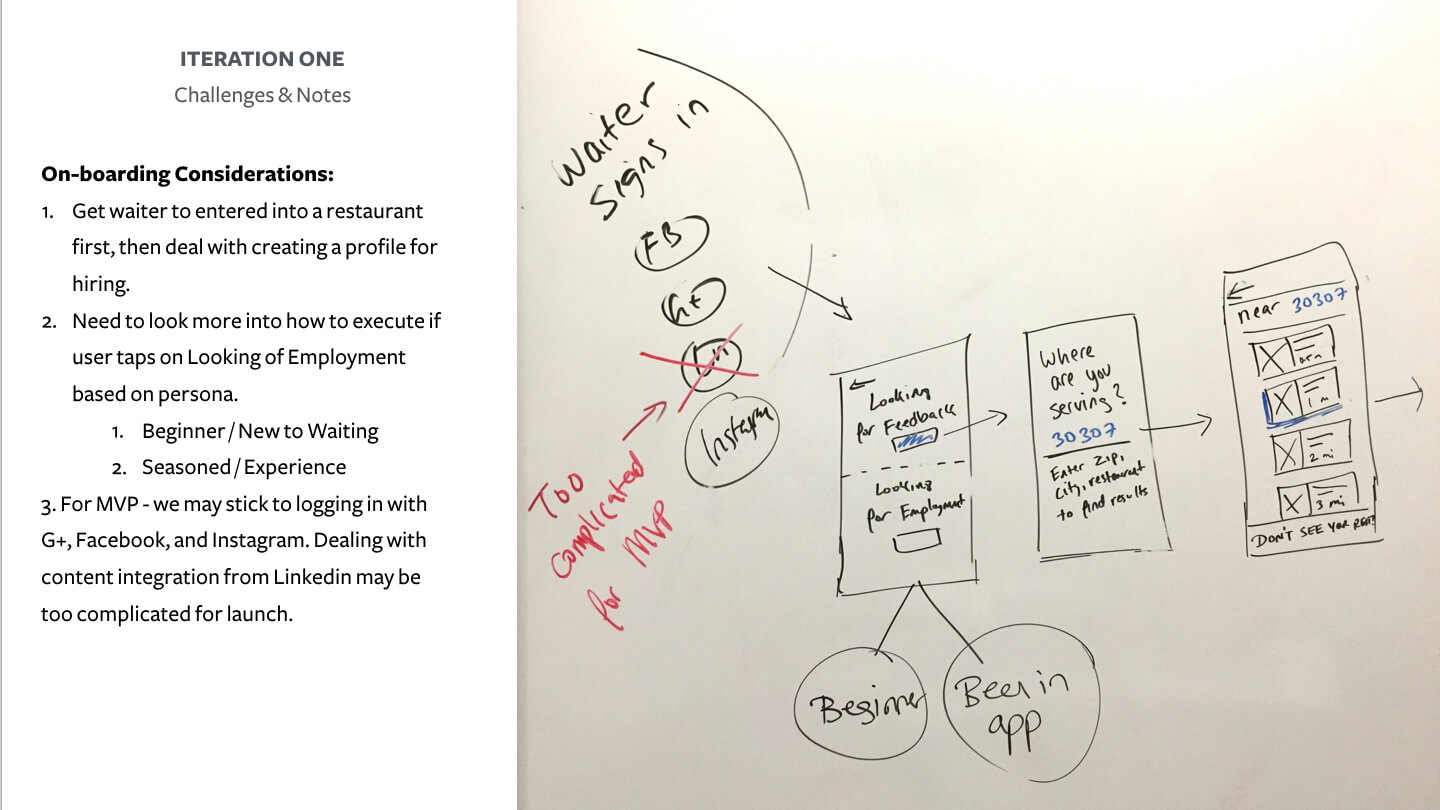 ITERATION ONE
Challenges & Notes
On-boarding Considerations:
1. Get waiter to entered into a restaurant
first, then deal with creating a profile for
hiring.
2. Need to look more into how to execute if
user taps on Looking of Employment
based on persona.
1. Beginner / New to Waiting
2. Seasoned / Experience
3. For MVP - we may stick to logging in with
G+, Facebook, and Instagram. Dealing with
content integration from Linkedin may be
too complicated for launch.
Waiter
Signs in
FB
G+
Too
complicated
for MVP
Looking
for Feedback
Looking
for Employment
Beginner
Been in
app
Where
are you
serving?
30307
Enter zip,
city, restaurant
to find results
near 30307
1 m
2 mi
3 mi
DON'T SEE YOUR